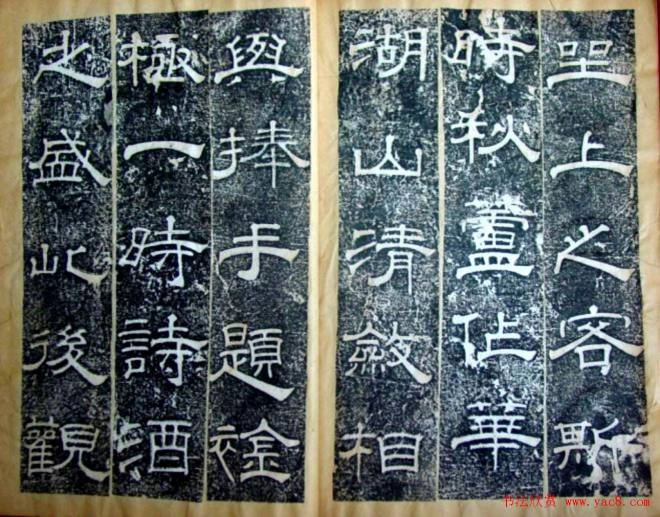 坐上之客斯
時秋蘆作華
湖山清斂相
與捧手題襟
極一時詩酒
之盛此後觀
书法欣赏 www.yac8.com